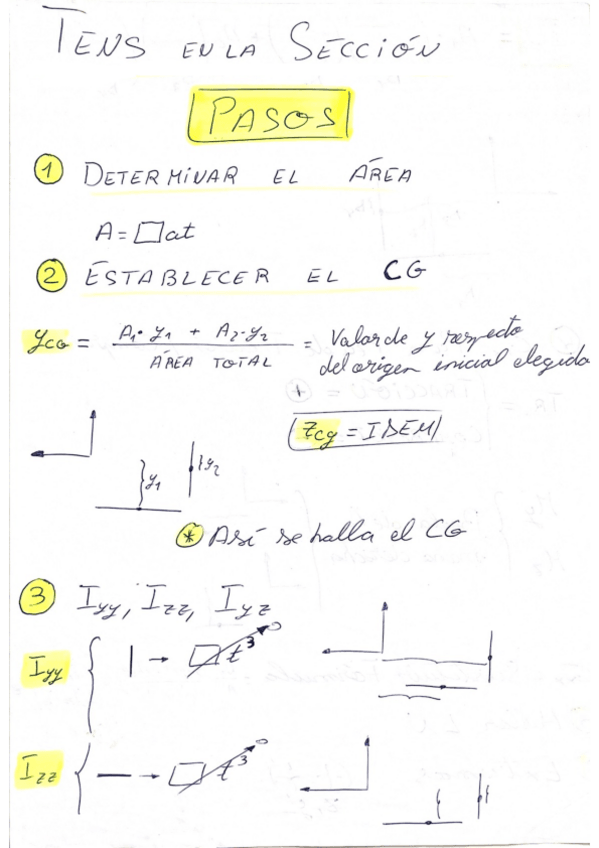 TENS EN LA SECCIÓN
PASOS
1 DETERMINAR EL ÁREA
A = □at
2 ESTABLECER EL CG
yCG = A1· y1 + A2·y2 / ÁREA TOTAL = Valor de y respecto
del origen inicial elegido
zcg = IDEM
y1
y2
* Así se halla el CG
3 Iyy, Izz, Iyz
Iyy { | → □t³ → 0
Izz { — → □t³ → 0